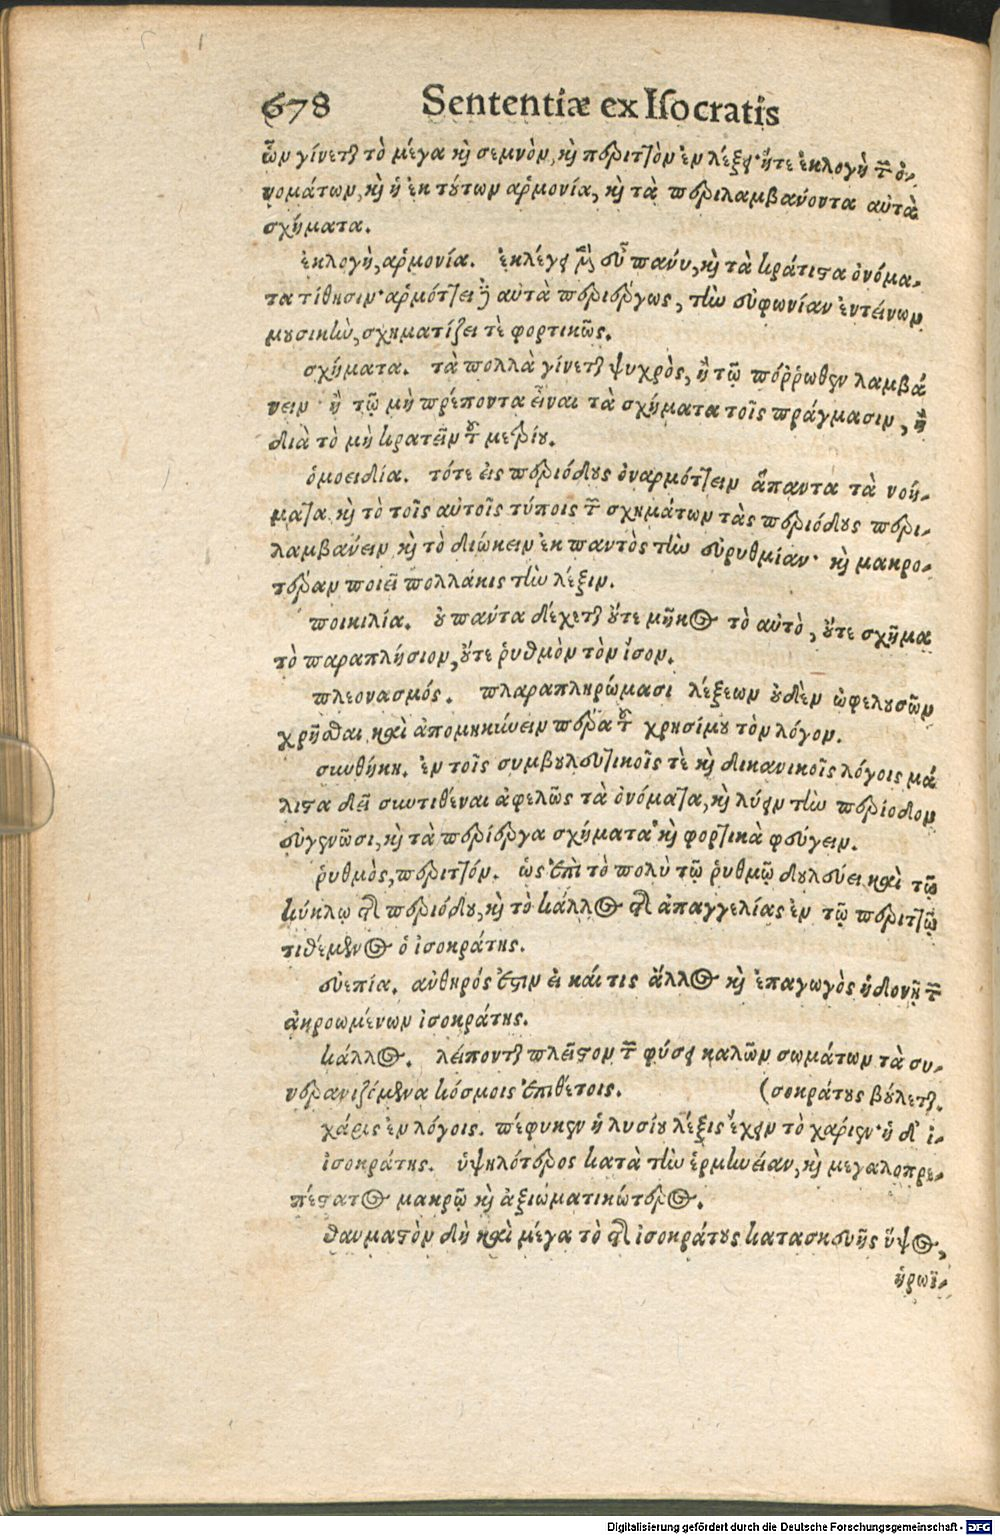 678 Sententiæ ex Isocratis
ὧν γίνεται τὸ μέγα καὶ σεμνὸν, καὶ περιττὸν ἐν λέξει· ἥτε ἐκλογὴ τῶν ὀ-
νομάτων, καὶ ἡ ἐκ τούτων ἁρμονία, καὶ τὰ περιλαμβάνοντα αὐτὰ
σχήματα.
ἐκλογὴ, ἁρμονία. ἐκλέγει μὲν εὖ πάνυ, καὶ τὰ κράτιστα ὀνόμα-
τα τίθησιν· ἁρμόττει δὲ αὐτὰ περιέργως, τὴν εὐφωνίαν ἐντείνων
μουσικὴν, σχηματίζει τὲ φορτικῶς.
σχήματα. τὰ πολλὰ γίνεται ψυχρὸς, ἢ τῷ πόῤῥωθεν λαμβά
νειν ἢ τῷ μὴ πρέποντα εἶναι τὰ σχήματα τοῖς πράγμασιν, ἢ
διὰ τὸ μὴ κρατεῖν τοῦ μετρίου.
ὁμοειδία. τότε εἰς περιόδους ἐναρμόττειν ἅπαντα τὰ νοή-
ματα καὶ τὸ τοῖς αὐτοῖς τύποις τῶν σχημάτων τὰς περιόδους περι-
λαμβάνειν καὶ τὸ διώκειν ἐκ παντὸς τὴν εὐρυθμίαν· καὶ μακρο-
τέραν ποιεῖ πολλάκις τὴν λέξιν.
ποικιλία. οὐ πάντα δέχεται οὔτε μῆκος τὸ αὐτὸ, οὔτε σχῆμα
τὸ παραπλήσιον, οὔτε ῥυθμὸν τὸν ἴσον.
πλεονασμός. πλαραπληρώμασι λέξεων οὐδὲν ὠφελουσῶν
χρῆσθαι καὶ ἀπομηκύνειν πέρα τοῦ χρησίμου τὸν λόγον.
συνθήκη. ἐν τοῖς συμβουλευτικοῖς τὲ καὶ δικανικοῖς λόγοις μά
λιστα δεῖ συντιθέναι ἀφελῶς τὰ ὀνόματα, καὶ λύειν τὴν περίοδον
εὐγενῶσι, καὶ τὰ περίεργα σχήματα καὶ φορτικὰ φεύγειν.
ῥυθμὸς, περιττόν. ὡς ἐπὶ τὸ πολὺ τῷ ῥυθμῷ δουλεύει καὶ τῷ
κύκλῳ τῆς περιόδου, καὶ τὸ κάλλος τῆς ἀπαγγελίας ἐν τῷ περιττῷ
τιθέμενος ὁ ἰσοκράτης.
εὐεπία. αὐθηρός ἐστιν εἰ καί τις ἄλλος καὶ ἐπαγωγὸς ἡδονῇ τῶν
ἀκροωμένων ἰσοκράτης.
κάλλος. λείπονται πλεῖστον τῶν φύσει καλῶν σωμάτων τὰ συ-
νερανιζόμενα κόσμοις ἐπιθέτοις. (σοκράτους βούλεται.
χάρις ἐν λόγοις. πέφυκεν ἡ λυσίου λέξις ἔχειν τὸ χαρίεν· ἡ δ' ἰ-
ἰσοκράτης. ὑψηλότερος κατὰ τὴν ἑρμηνείαν, καὶ μεγαλοπρε-
πέστατος μακρῷ καὶ ἀξιωματικώτερος.
θαυμαστὸν δὴ καὶ μέγα τὸ τῆς ἰσοκράτους κατασκευῆς ὕψος,
ἡρωϊ-
Digitalisierung gefördert durch die Deutsche Forschungsgemeinschaft - DFG